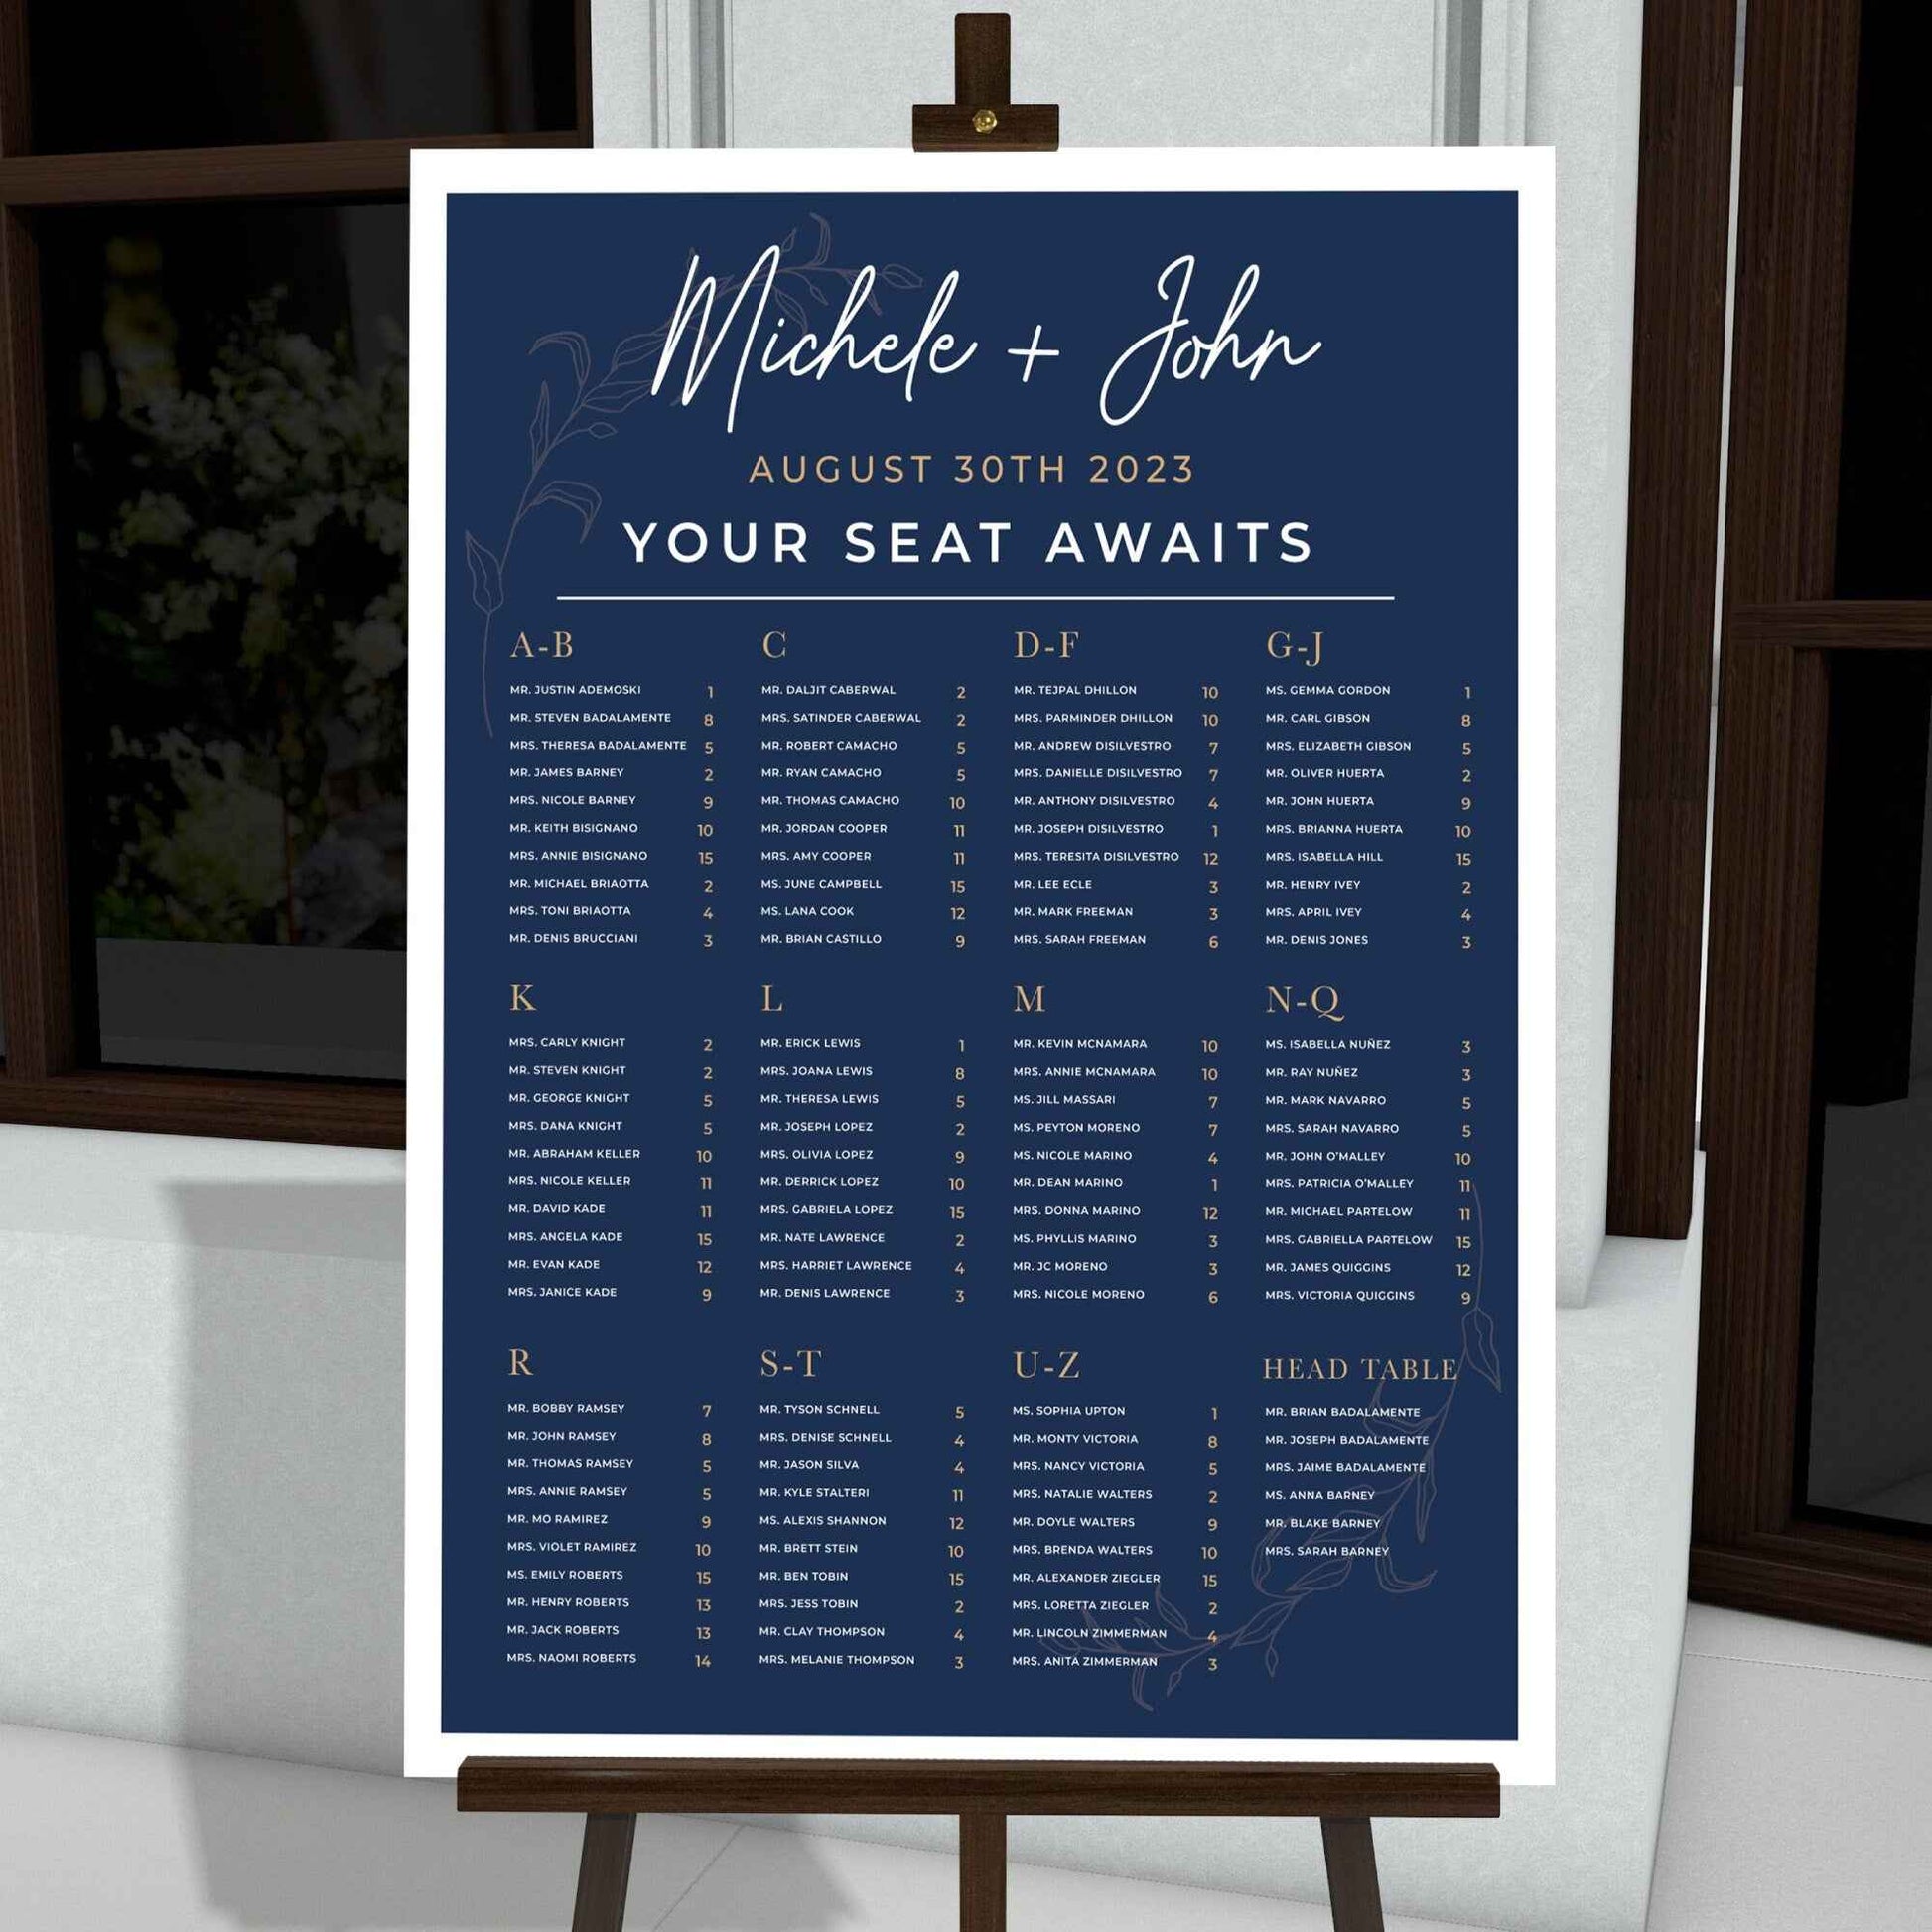 Michele + John
AUGUST 30TH 2023
YOUR SEAT AWAITS
A-B
MR. JUSTIN ADEMOSKI 1
MR. STEVEN BADALAMENTE 8
MRS. THERESA BADALAMENTE 5
MR. JAMES BARNEY 2
MRS. NICOLE BARNEY 9
MR. KEITH BISIGNANO 10
MRS. ANNIE BISIGNANO 15
MR. MICHAEL BRIAOTTA 2
MRS. TONI BRIAOTTA 4
MR. DENIS BRUCCIANI 3
C
MR. DALJIT CABERWAL 2
MRS. SATINDER CABERWAL 2
MR. ROBERT CAMACHO 5
MR. RYAN CAMACHO 5
MR. THOMAS CAMACHO 10
MR. JORDAN COOPER 11
MRS. AMY COOPER 11
MS. JUNE CAMPBELL 15
MS. LANA COOK 12
MR. BRIAN CASTILLO 9
D-F
MR. TEJPAL DHILLON 10
MRS. PARMINDER DHILLON 10
MR. ANDREW DISILVESTRO 7
MRS. DANIELLE DISILVESTRO 7
MR. ANTHONY DISILVESTRO 4
MR. JOSEPH DISILVESTRO 1
MRS. TERESITA DISILVESTRO 12
MR. LEE ECLE 3
MR. MARK FREEMAN 3
MRS. SARAH FREEMAN 6
G-J
MS. GEMMA GORDON 1
MR. CARL GIBSON 8
MRS. ELIZABETH GIBSON 5
MR. OLIVER HUERTA 2
MR. JOHN HUERTA 9
MRS. BRIANNA HUERTA 10
MRS. ISABELLA HILL 15
MR. HENRY IVEY 2
MRS. APRIL IVEY 4
MR. DENIS JONES 3
K
MRS. CARLY KNIGHT 2
MR. STEVEN KNIGHT 2
MR. GEORGE KNIGHT 5
MRS. DANA KNIGHT 5
MR. ABRAHAM KELLER 10
MRS. NICOLE KELLER 11
MR. DAVID KADE 11
MRS. ANGELA KADE 15
MR. EVAN KADE 12
MRS. JANICE KADE 9
L
MR. ERICK LEWIS 1
MRS. JOANA LEWIS 8
MR. THERESA LEWIS 5
MR. JOSEPH LOPEZ 2
MRS. OLIVIA LOPEZ 9
MR. DERRICK LOPEZ 10
MRS. GABRIELA LOPEZ 15
MR. NATE LAWRENCE 2
MRS. HARRIET LAWRENCE 4
MR. DENIS LAWRENCE 3
M
MR. KEVIN MCNAMARA 10
MRS. ANNIE MCNAMARA 10
MS. JILL MASSARI 7
MS. PEYTON MORENO 7
MS. NICOLE MARINO 4
MR. DEAN MARINO 1
MRS. DONNA MARINO 12
MS. PHYLLIS MARINO 3
MR. JC MORENO 3
MRS. NICOLE MORENO 6
N-Q
MS. ISABELLA NUÑEZ 3
MR. RAY NUÑEZ 3
MR. MARK NAVARRO 5
MRS. SARAH NAVARRO 5
MR. JOHN O'MALLEY 10
MRS. PATRICIA O'MALLEY 11
MR. MICHAEL PARTELOW 11
MRS. GABRIELLA PARTELOW 15
MR. JAMES QUIGGINS 12
MRS. VICTORIA QUIGGINS 9
R
MR. BOBBY RAMSEY 7
MR. JOHN RAMSEY 8
MR. THOMAS RAMSEY 5
MRS. ANNIE RAMSEY 5
MR. MO RAMIREZ 9
MRS. VIOLET RAMIREZ 10
MS. EMILY ROBERTS 15
MR. HENRY ROBERTS 13
MR. JACK ROBERTS 13
MRS. NAOMI ROBERTS 14
S-T
MR. TYSON SCHNELL 5
MRS. DENISE SCHNELL 4
MR. JASON SILVA 4
MR. KYLE STALTERI 11
MS. ALEXIS SHANNON 12
MR. BRETT STEIN 10
MR. BEN TOBIN 15
MRS. JESS TOBIN 2
MR. CLAY THOMPSON 4
MRS. MELANIE THOMPSON 3
U-Z
MS. SOPHIA UPTON 1
MR. MONTY VICTORIA 8
MRS. NANCY VICTORIA 5
MRS. NATALIE WALTERS 2
MR. DOYLE WALTERS 9
MRS. BRENDA WALTERS 10
MR. ALEXANDER ZIEGLER 15
MRS. LORETTA ZIEGLER 2
MR. LINCOLN ZIMMERMAN 4
MRS. ANITA ZIMMERMAN 3
HEAD TABLE
MR. BRIAN BADALAMENTE
MR. JOSEPH BADALAMENTE
MRS. JAIME BADALAMENTE
MS. ANNA BARNEY
MR. BLAKE BARNEY
MRS. SARAH BARNEY